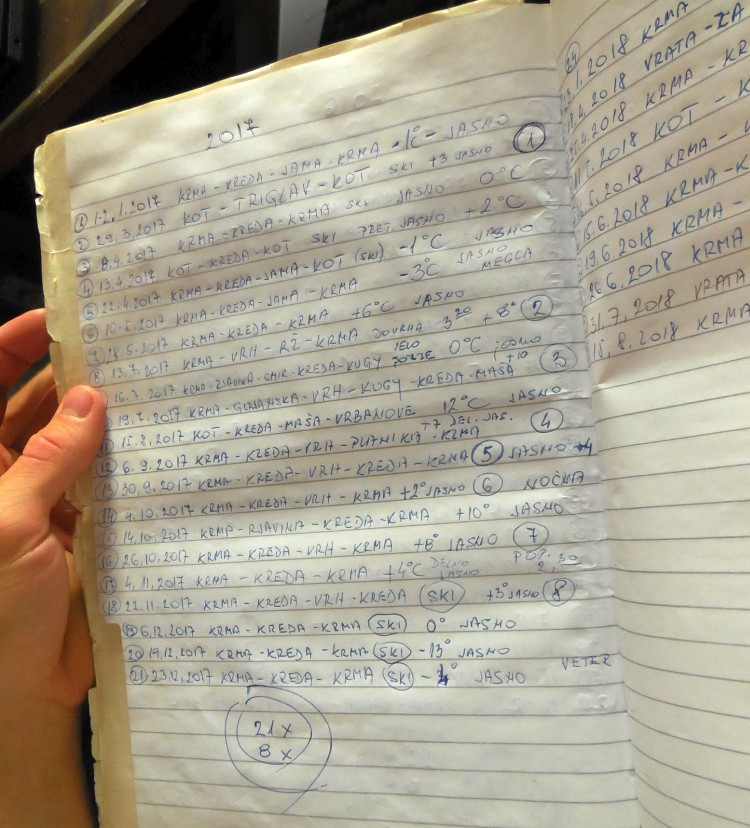 2017
1 1-2.1.2017 KRMA-KREDA-JAMA-KRMA -1°C-JASNO
2 29.3.2017 KOT-TRIGLAV-KOT SKI +3 JASNO 1
3 8.4.2017 KRMA-KREDA-KRMA SKI JASNO 0°C
4 13.4.2017 KOT-KREDA-KOT SKI PRET JASNO +2°C
5 22.4.2017 KRMA-KREDA-JAMA-KOT (SKI) -1°C JASNO
6 2017 KRMA-KREDA-JAMA-KRMA -3°C JASNO MEGLA
7 28.5.2017 KRMA-KREDA-KRMA +6°C JASNO
8 13.7.2017 KRMA-VRH-RŽ-KRMA 3 20 +8° 2
16.7.2017 KREDA-KUGY 0°C +10
19.7.2017 KRMA- -VRH-KUGY-KREDA-MAŠA 3
11 2017 KOT-KREDA-MAŠA-VRBANOVE 12°C JASNO
12 6.9.2017 KRMA-KREDA-VRH-PLANIKA-KRMA +7 DEL. JAS. 4
13 30.9.2017 KRMA-KREDA-VRH-KREDA-KRMA 5 JASNO +4
14 10.2017 KRMA-KREDA-VRH-KRMA +2° JASNO 6 NOČNA
15 14.10.2017 KRMA-RJAVINA-KREDA-KRMA +10° JASNO
16 26.10.2017 KRMA-KREDA-VRH-KRMA +8° JASNO 7
17 4.11.2017 KRMA-KREDA-KRMA +4°C DELNO JASNO POP. 2,30
18 22.11.2017 KRMA-KREDA-VRH-KREDA SKI +3° JASNO 8
19 6.12.2017 KRMA-KREDA-KRMA SKI 0° JASNO
20 19.12.2017 KRMA-KREDA-KRMA SKI -13° JASNO
21 23.12.2017 KRMA-KREDA-KRMA SKI ° JASNO VETER
21x
8x
1.2018 KRMA
4.2018 VRATA-ZA
4.2018 KRMA-KR
2018 KOT-K
5.2018 KRMA-
15.6.2018 KRMA-K
19.6.2018 KRMA-
26.6.2018 KRMA
31.7.2018 VRATA
15.8.2018 KRMA